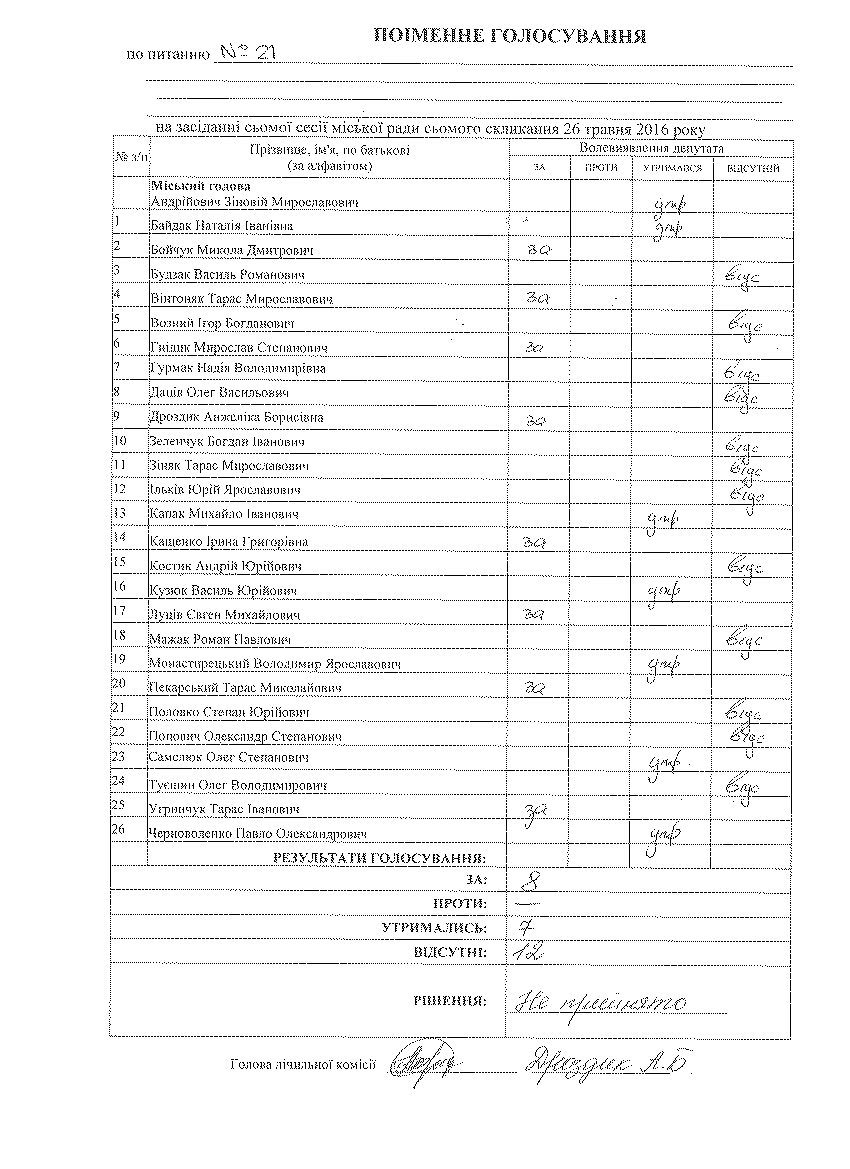 ПОІМЕННЕ ГОЛОСУВАННЯ
по питанню № 21
на засіданні сьомої сесії міської ради сьомого скликання 26 травня 2016 року
№ з/п Прізвище, ім'я, по батькові (за алфавітом) Волевиявлення депутата
ЗА ПРОТИ УТРИМАВСЯ ВІДСУТНІЙ
Міський голова
Андрійович Зіновій Мирославович утр
1 Байдак Наталія Іванівна утр
2 Бойчук Микола Дмитрович за
3 Будзак Василь Романович відс
4 Вінтоняк Тарас Мирославович за
5 Возний Ігор Богданович відс
6 Гнідик Мирослав Степанович за
7 Гурмак Надія Володимирівна відс
8 Даців Олег Васильович відс
9 Дроздик Анжеліка Борисівна за
10 Зеленчук Богдан Іванович відс
11 Зіняк Тарас Мирославович відс
12 Ільків Юрій Ярославович відс
13 Капак Михайло Іванович утр
14 Кащенко Ірина Григорівна за
15 Костик Андрій Юрійович відс
16 Кузюк Василь Юрійович утр
17 Луців Євген Михайлович за
18 Мажак Роман Павлович відс
19 Монастирецький Володимир Ярославович утр
20 Пекарський Тарас Миколайович за
21 Половко Степан Юрійович відс
22 Попович Олександр Степанович відс
23 Самелюк Олег Степанович утр
24 Туєшин Олег Володимирович відс
25 Угринчук Тарас Іванович за
26 Черноволенко Павло Олександрович утр
РЕЗУЛЬТАТИ ГОЛОСУВАННЯ:
ЗА: 8
ПРОТИ: —
УТРИМАЛИСЬ: 7
ВІДСУТНІ: 12
РІШЕННЯ: Не прийнято
Голова лічильної комісії Дроздик А.Б